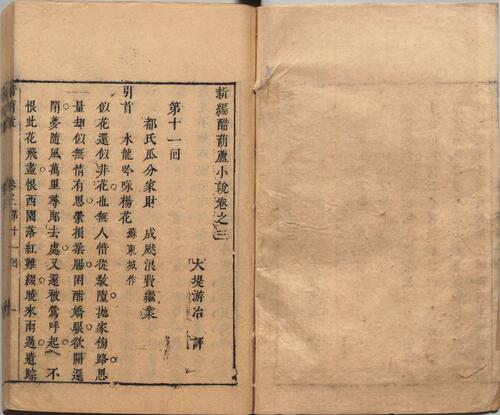 新編醋葫蘆小說卷之三
大堤游冶 評
第十一回
都氏瓜分家財 成飈浪費繼業
引首 水龍吟咏楊花 蘇東坡作
似花還似非花也無人惜從教墮拋家傍路思
量却似無情有思縈損柔腸困酣嬌眼欲開還
閉夢隨風萬里尋郎去處又還被鶯呼起 不
恨此花飛盡恨西園落紅難綴曉來雨過遺踪
卷三第十一回